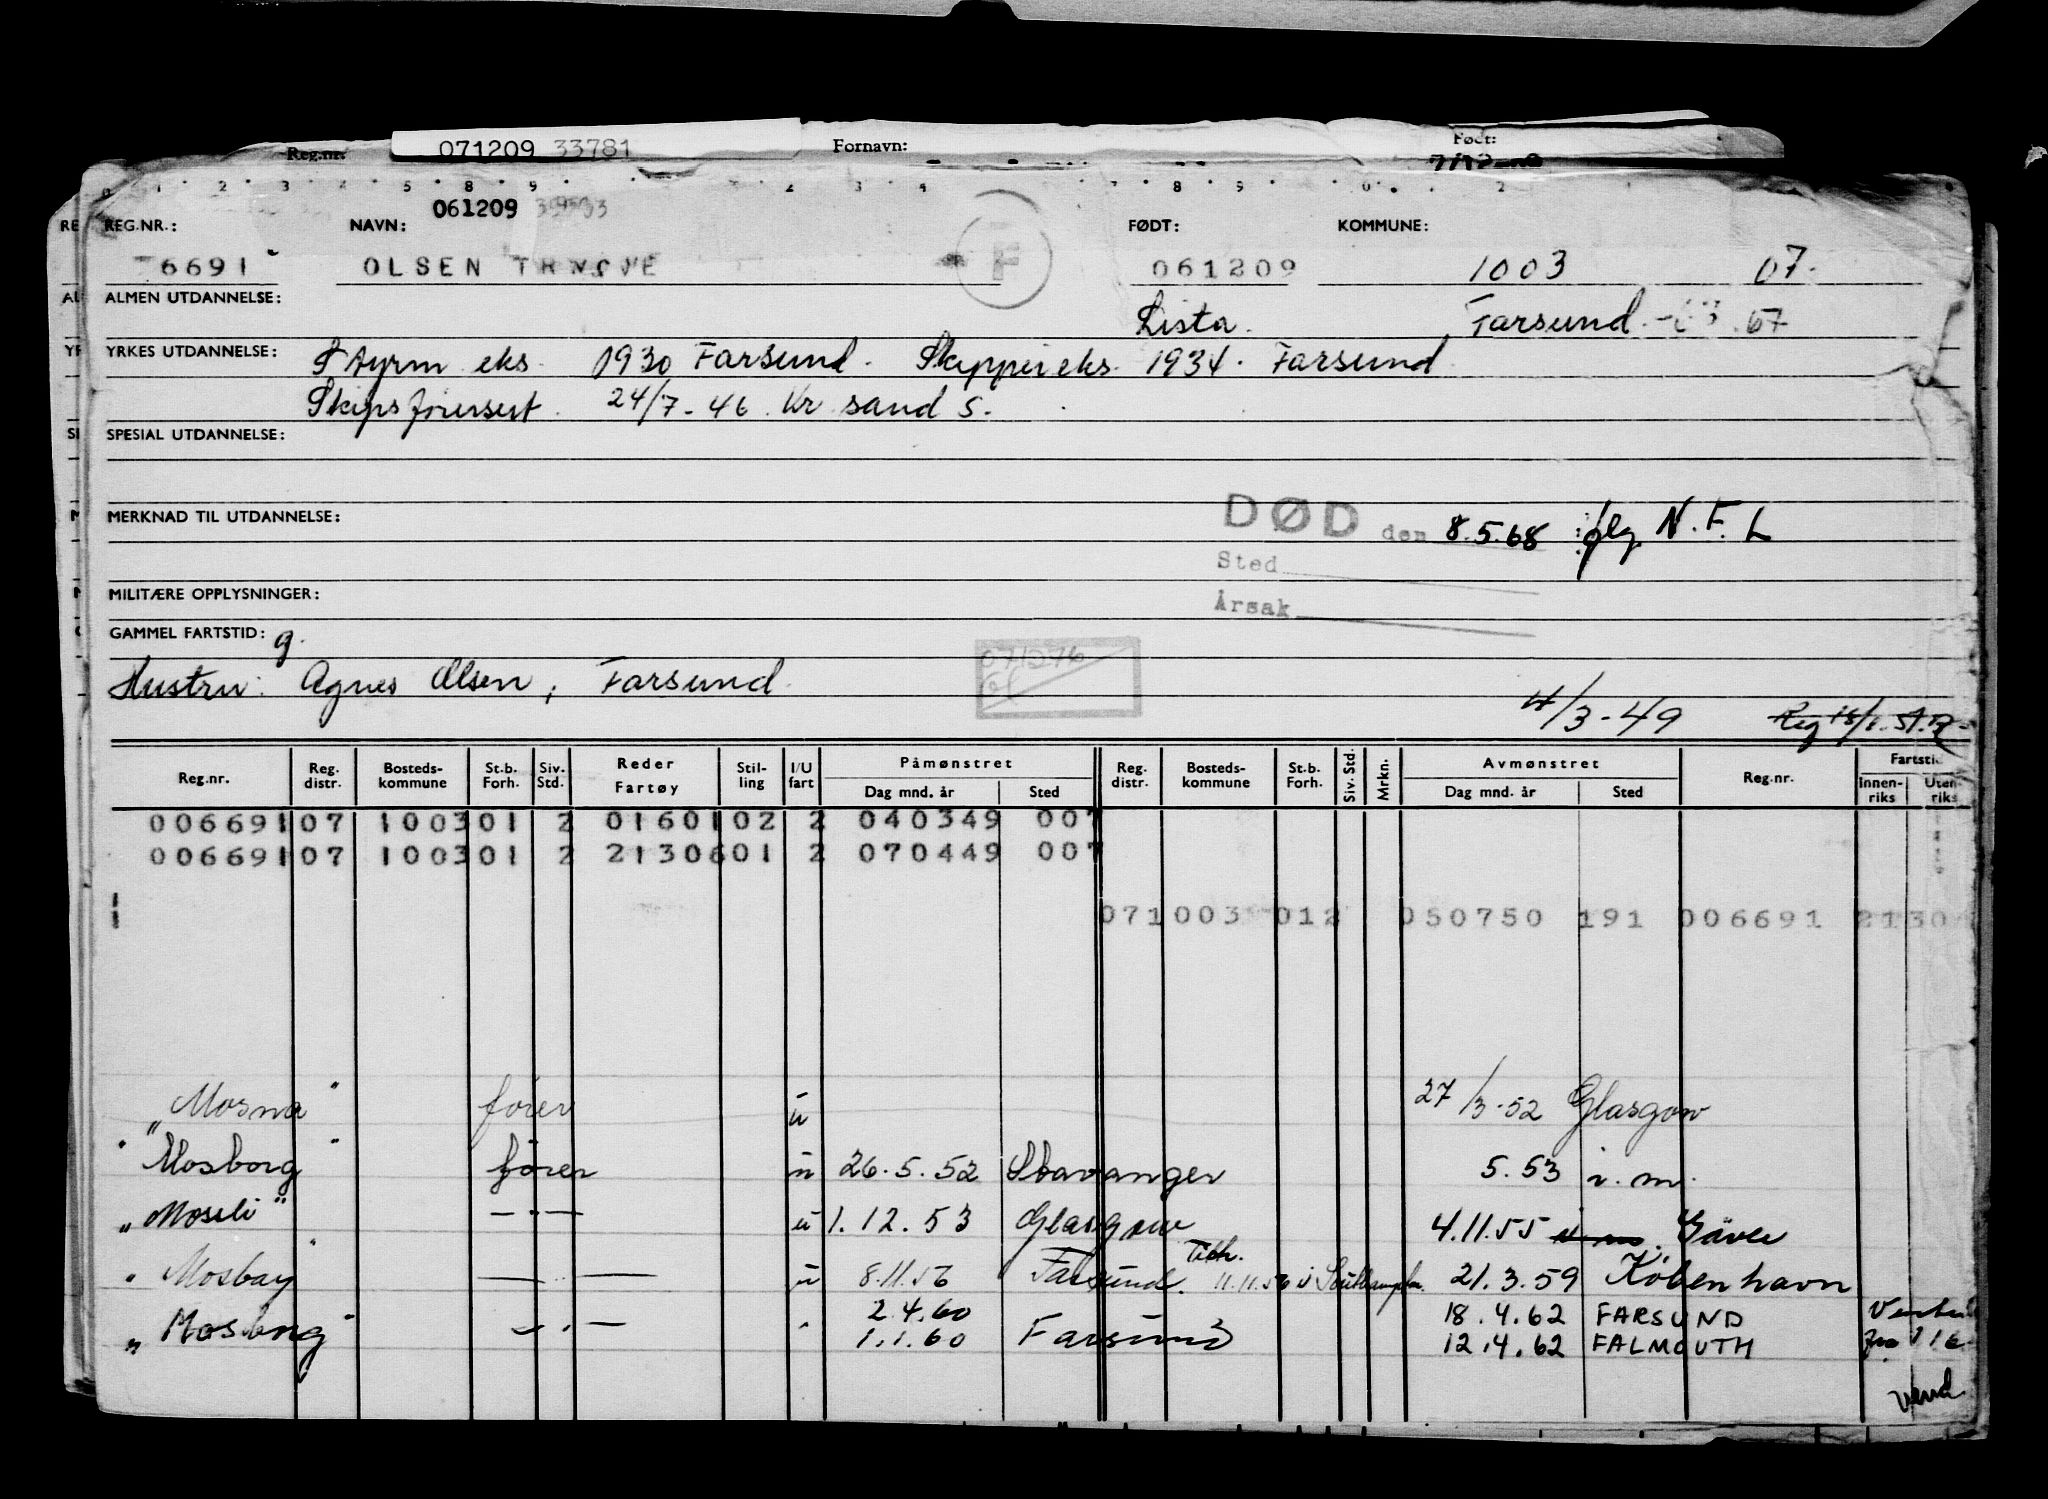 Reg.nr. 071209 33781 Fornavn: Født:
061209
REG.NR.: NAVN: FØDT: KOMMUNE:
6691 OLSEN F 061209 1003 07.
ALMEN UTDANNELSE: Lista. Farsund. 67
YRKES UTDANNELSE: Styrm eks. 1930 Farsund. Skippereks. 1934. Farsund
Skipsførersert. 24/7-46. Kr sand S.
SPESIAL UTDANNELSE:
MERKNAD TIL UTDANNELSE: DØD den 8.5.68 iflg. N.F.L
Sted
Årsak
MILITÆRE OPPLYSNINGER:
GAMMEL FARTSTID: g.
071276
Hustru: Agnes Olsen, Farsund.
4/3-49
Reg.nr. Reg. distr. Bosteds-kommune St.b. Forh. Siv. Std. Reder Fartøy Stil-ling I/U fart Påmønstret Dag mnd. år Sted Reg. distr. Bosteds-kommune St.b. Forh. Siv. Std. Mrkn. Avmønstret Dag mnd. år Sted Reg.nr. Fartstid Innen-riks Uten-riks
006691 07 1003 01 2 01601 02 2 040349 007
006691 07 1003 01 2 21306 01 2 070449 007
07 1003 01 2 050750 191 006691 2130
"Mosna" fører u 27/3-52 Glasgow
"Mosborg" fører u 26.5.52 Stavanger 5.53 i.m.
"Moseli" —"— u 1.12.53 Glasgow 4.11.55 Gävle
"Mosbay" —"— u 8.11.56 Farsund. Tilh. 11.11.56 i Southampton. 21.3.59 København
2.4.60 18.4.62 FARSUND
"Mosborg" —"— " 1.1.60 Farsund 12.4.62 FALMOUTH
Vend